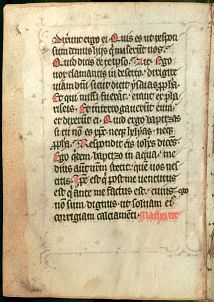 ergo ei. Quis es ut respon
sum demus hijs q miserūt nos.
Quid dicis de teipso. Ait. Ego
vox clamantis in deserto. dirigite
viam dn̄i. sicut dixit ysaias ꝓpha
Et qui missi fuerāt. erant ex pha
riseis. Et interrogaverūt eum
et dixerūt ei. Quid ergo baptizas
si tu nō es xp̄c. neqꝫ helyas. neqꝫ
ꝓpha. Respondit eis ioh̄es dicēs
Ego qdem baptizo in aqua. me
dius aūt vr̄m stetit. quē vos nes
citis. Ip̄e est q post me venturus
est q ante me factus est. cuius ego
non sum dignus ut soluam ei
corrigiam calciamēti.